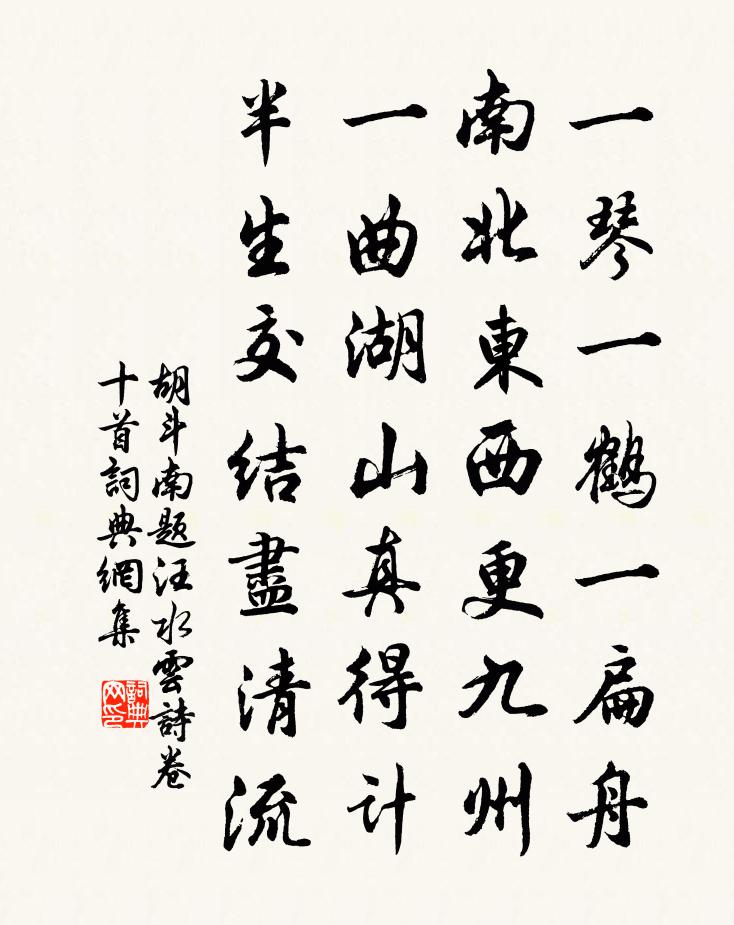 一琴一鶴一扁舟
南北東西更九州
一曲湖山真得计
半生交结盡清流
胡斗南题汪水雲詩卷
十首詞典網集
詞典
网印